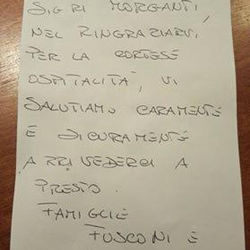 SIG.RI MORGANTI,
NEL RINGRAZIARVI
PER LA CORTESE
OSPITALITÀ, VI
SALUTIAMO CARAMENTE
E SICURAMENTE
ARRIVEDERCI A
PRESTO.
FAMIGLIE
FUSCONI E